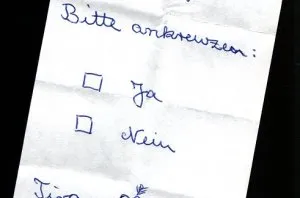 Bitte ankreuzen:
☐ Ja
☐ Nein